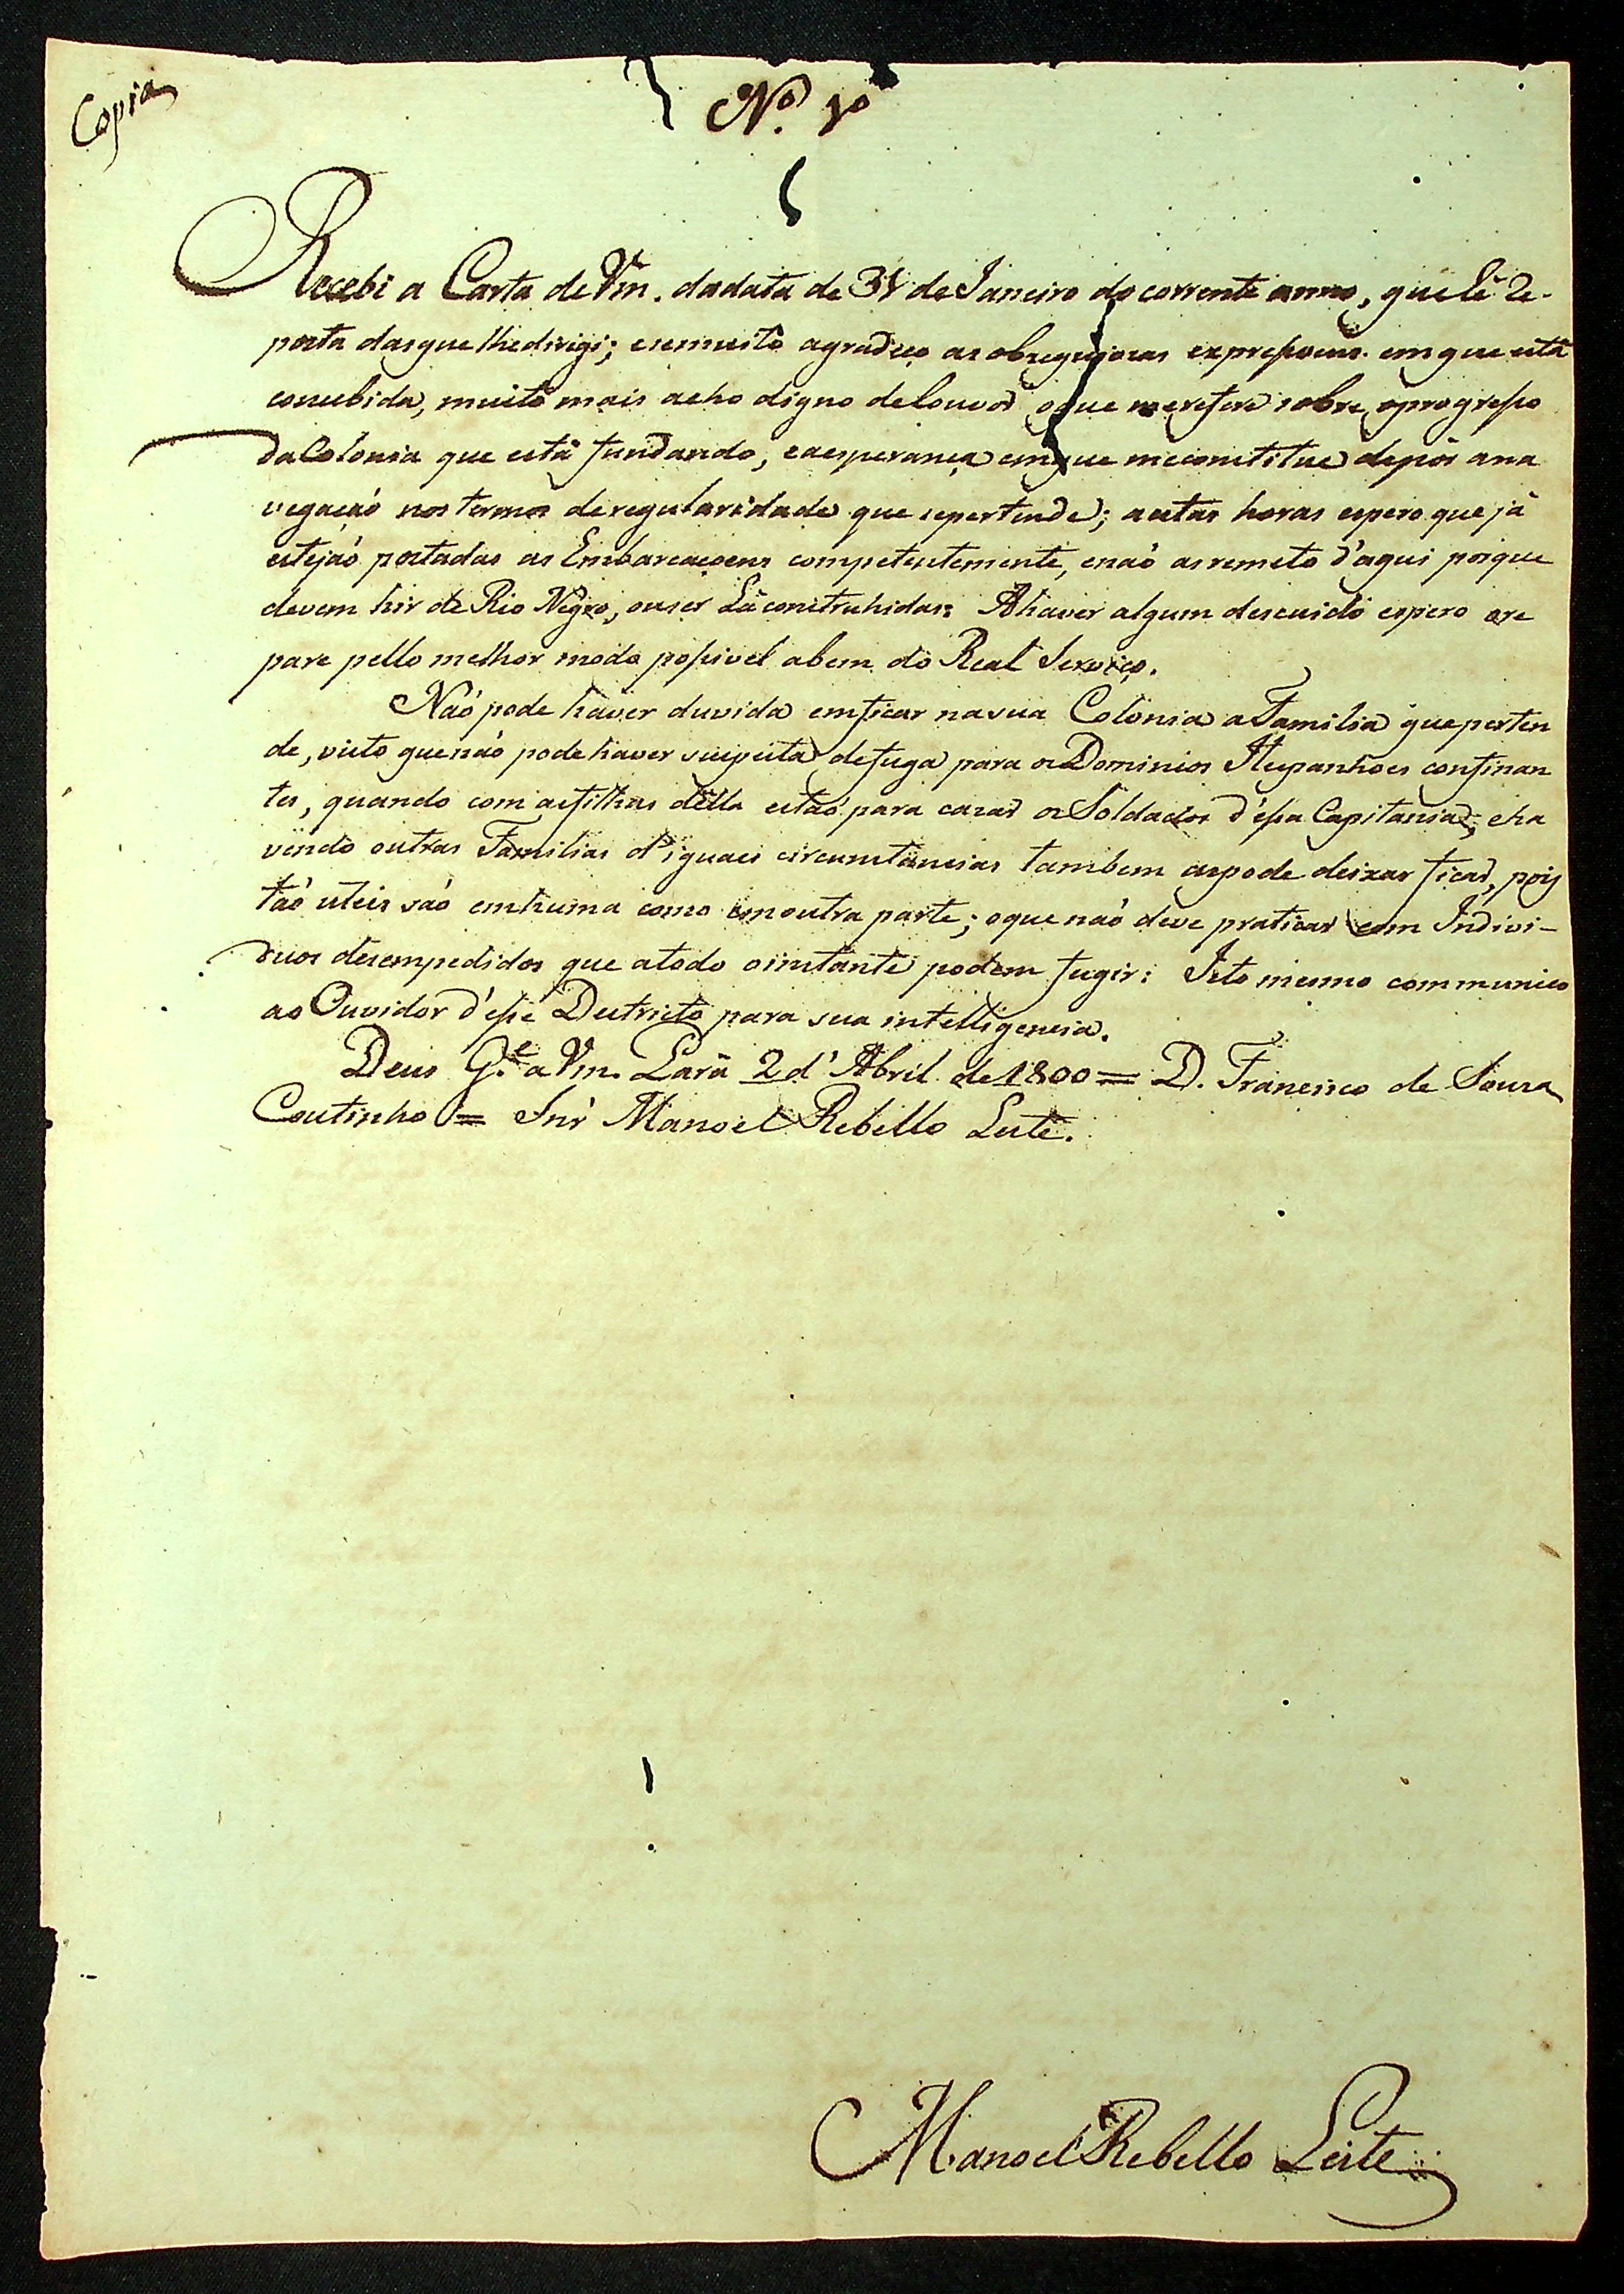 Copia
N.º 1º
Recebi a Carta de Vm. dadata de 31 de Janeiro do corrente anno, que hê Re-
posta dasque lhedirigi; esemuito agradeço as obzequiozas expressoens em que está
concebida, muito mais acho digno delouvor oque merefere sobre oprogresso
daColonia que está fundando, eaesperança emque meconstitue depôr ana
vegação nos termos deregularidade que sepertende; aestas horas espero que já
estejaó postadas as Embarcaçoens competentemente, enaó asremeto d'aqui porque
devem hir de Rio Negro, ouser Lâ construhidas: Ahaver algum descuido espero ore
pare pello melhor modo possivel abem do Real Serviço.
Naó pode haver duvida emficar nasua Colonia aFamilia queperten
de, visto quenaó podehaver suspeita defuga para osDominios Hespanhoes confinan
tes, quando com asfilhas della estaó para cazar osSoldados d'essa Capitania; eha
vendo outras Familias d'iguaes circumstancias tambem aspode deixar ficar, pois
taó uteis saó emhuma como emoutra parte; oque naó deve praticar com Indivi-
duos desempedidos que atodo oinstante podem fugir: Isto mesmo communico
ao Ouvidor d'esse Destricto para sua intelligencia.
Deus G.e a Vm. Parâ 2 d'Abril de 1800 = D. Francisco de Souza
Coutinho = Snr' Manoel Rebello Leite.
Manoel Rebello Leite